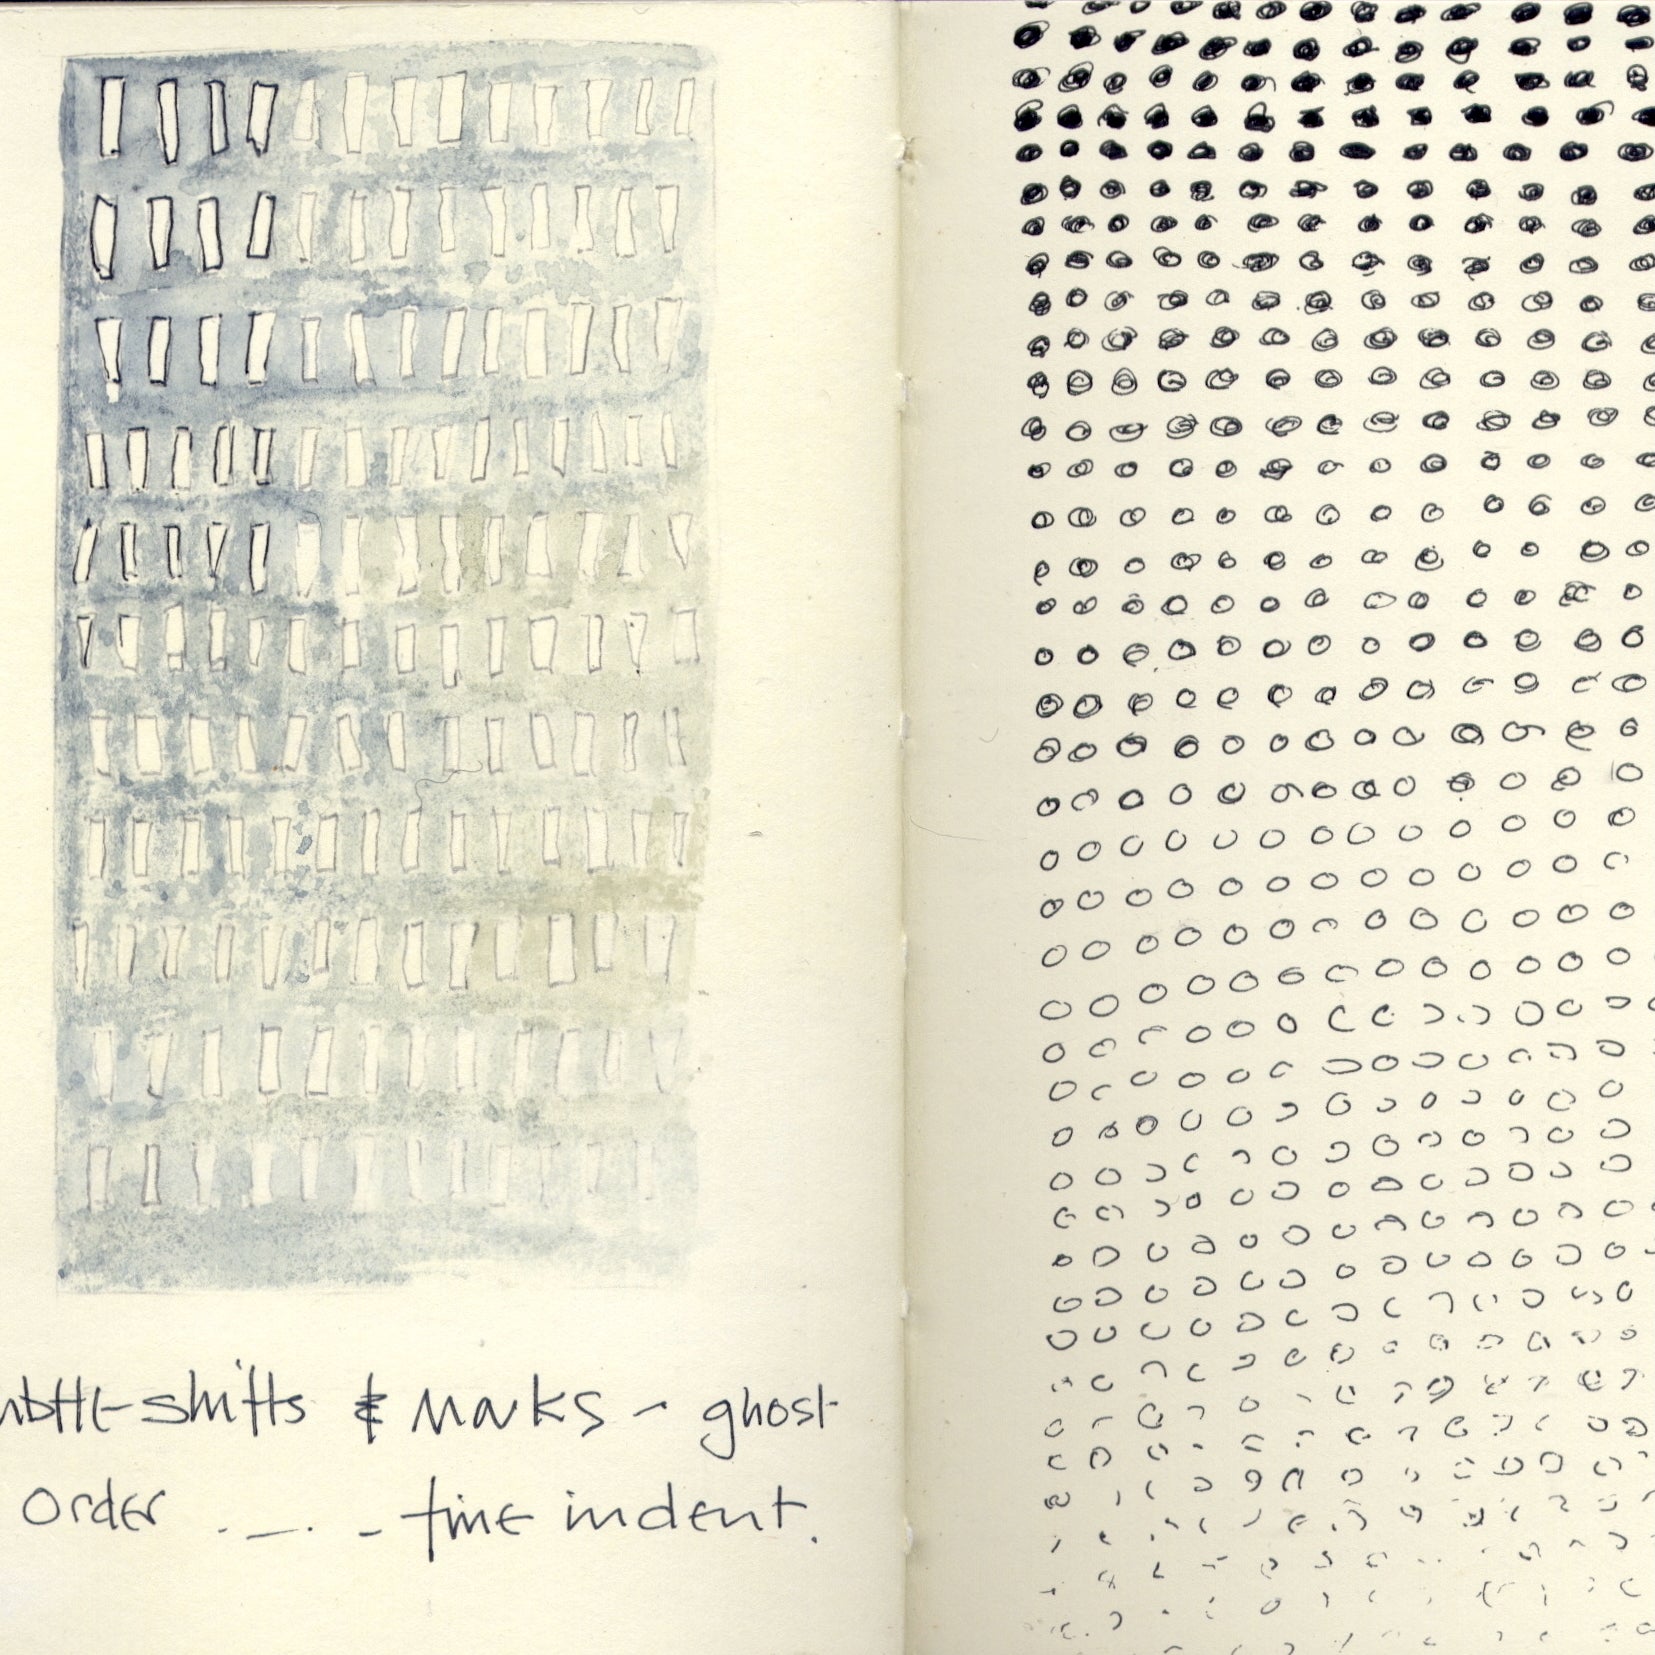 ubtle shifts & marks - ghost
order . _ . - fine indent.